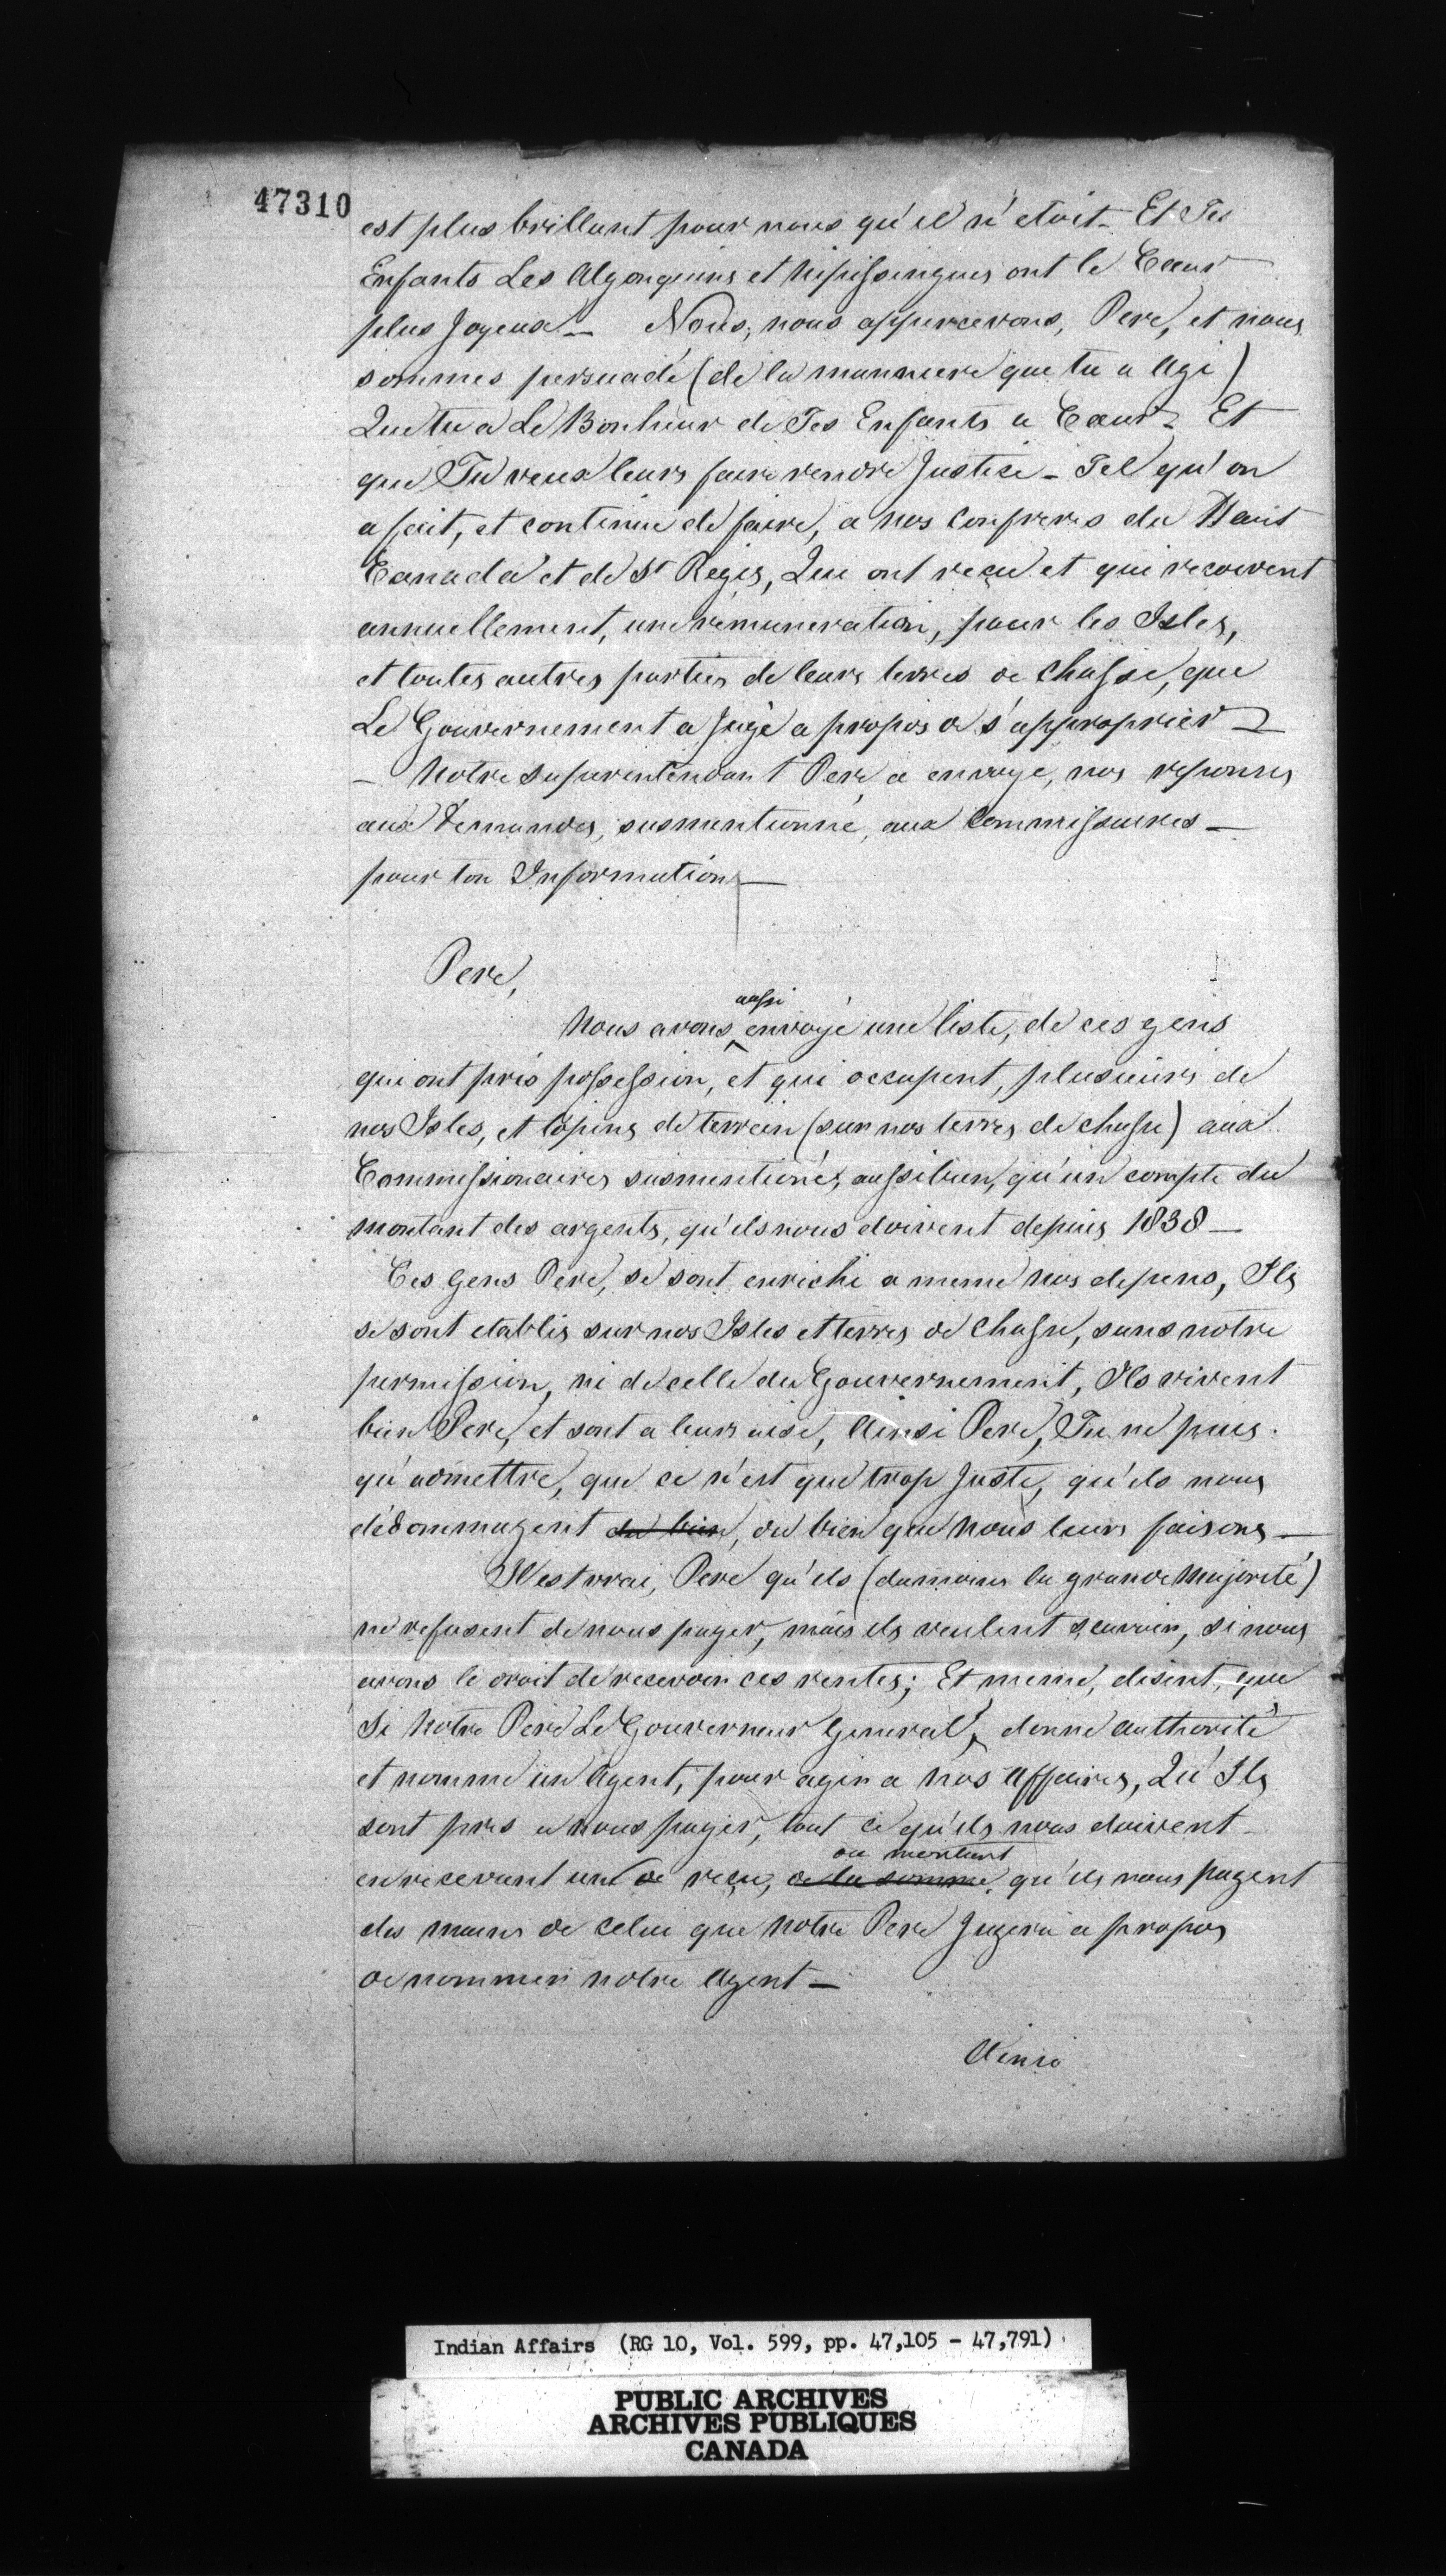 47310
est plus brillant pour nous qu'il n'etoit_ Et Tes
Enfants Les Algonquins et Nipissingues ont le Cœur
plus Joyeux_ Nous, nous appercevons, Pere, et nous
sommes persuadé (de la manniere que tu a Agi)
Que tu a Le Bonheur de Tes Enfants a Cœur_ Et
que Tu veux leurs faire rendre Justice_ Tel qu'on
a fait, et continue de faire, a nos Confreres du Haut
Canada et de St Regis, Qui ont reçu et qui recoivent
annuellement, une rémuneration, pour les Isles,
et toutes autres parties de leurs terres de Chasse, que
Le Gouvernement a Jugé a propos de s'approprier_
_ Notre Surintendant Pere, a envoye, nos reponses
aux Demandes, susmentionné, aux Commissaires_
pour ton Information_
Pere,
aussi
Nous avons envoyé une liste, de ces gens
qui ont pris possession, et qui occupent, plusieurs de
nos Isles, et lopins de terrein (sur nos terres de chasse) aux
Commissionaires susmentionés, aussi bien, qu'un compte du
montant des argents, qu'ils nous doivent depuis 1838_
Ces Gens Pere, se sont enrichi a meme nos depens, Ils
se sont etablis sur nos Isles et terres de Chasse, sans notre
permission, ni de celle du Gouvernement, Ils vivent
bien Pere, et sont a leurs aise, Ainsi Pere, Tu ne puis
qu'admettre, que ce n'est que trop Juste, qu'ils nous
dédommagent du bien, du bien que nous leurs faisons_
Il est vrai, Pere qu'ils (du moins la grande Majorité)
ne refusent de nous payer, mais ils veulent scavoir, si nous
avons le droit de recevoir ces rentes; Et meme, disent, que
Si Notre Pere Le Gouverneur General, donne authorité
et nomme un Agent, pour agir a nos Affaires, Qu'Ils
sont pres a nous payer, tout ce qu'ils nous doivent
du montant
en recevant un de reçu, de la somme, qu'ils nous payent
des mains de celui que Notre Pere Jugera a propos
de nommer notre Agent_
Ainsi
Indian Affairs (RG 10, Vol. 599, pp. 47,105 - 47,791)
PUBLIC ARCHIVES
ARCHIVES PUBLIQUES
CANADA